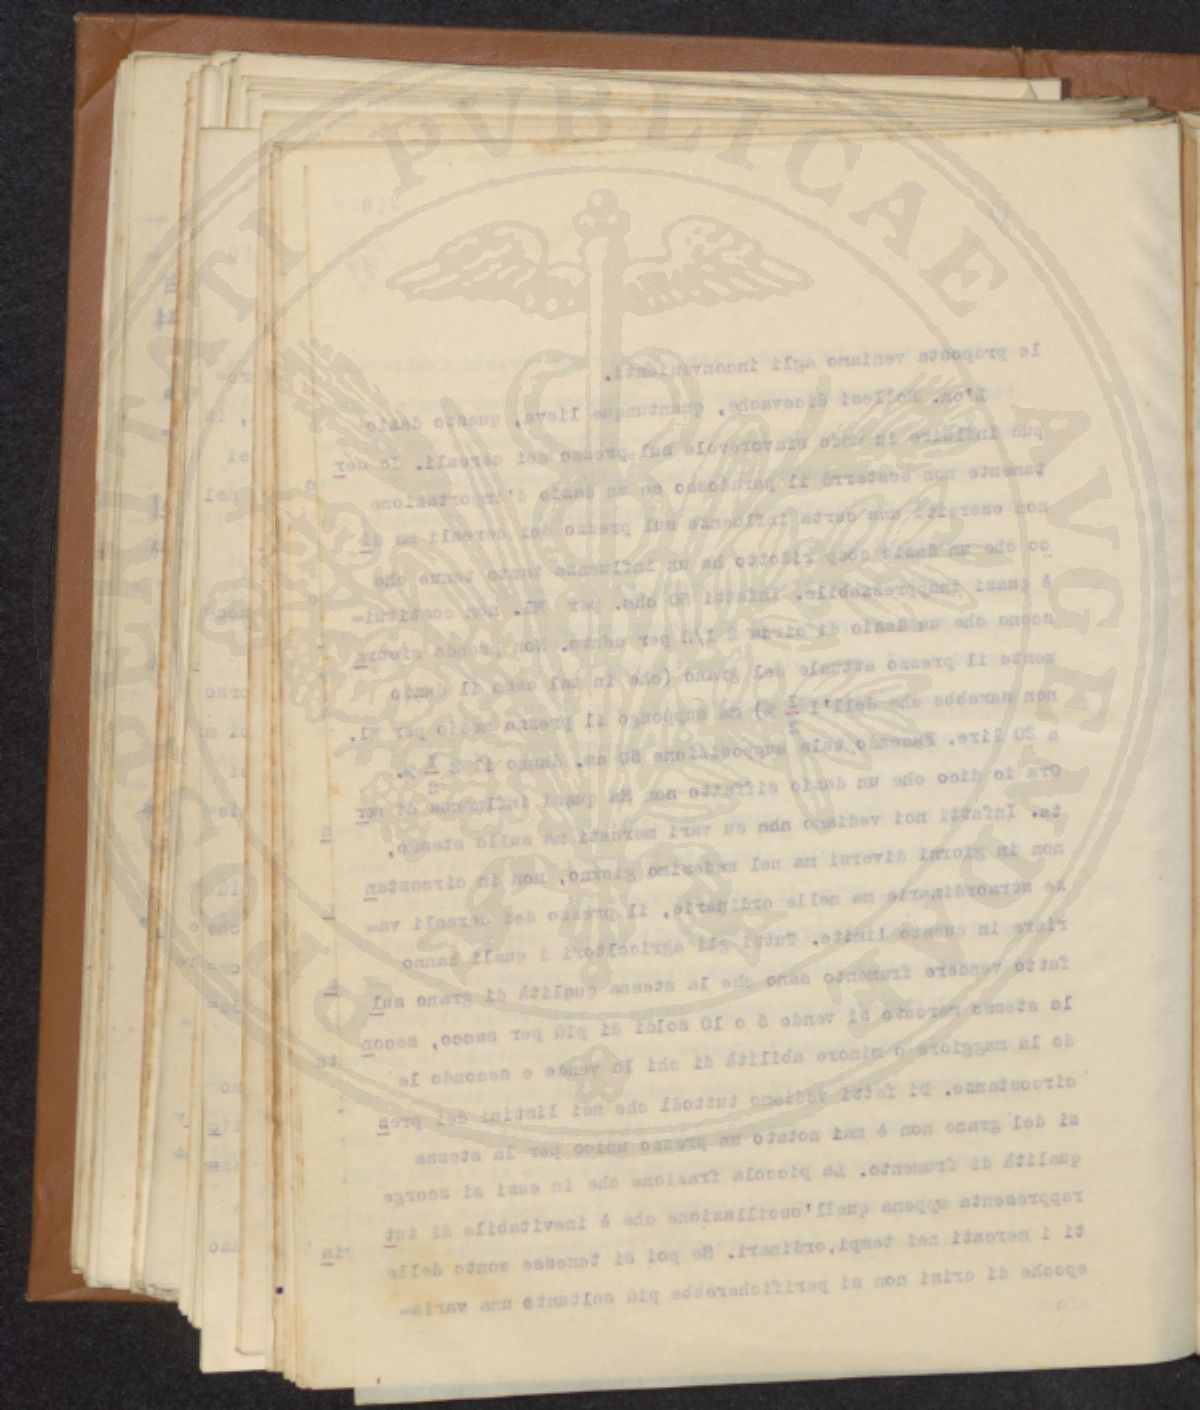 PROSPERITATI PVBLICAE AVGENDAE
310
le proposta veniamo agli inconvenienti.
L'on. Pollesi dicevache, quantunque lieve, questo dazio
può influire in modo sfavorevole sul prezzo dei cereali. Io cer
tamente non sosterrò il paradosso se un dazio d'importazione
non eserciti una certa influenza sul prezzo dei cereali ma di
co che un dazio cosp ridotto ha un influenza tanto tenue che
è quasi inapprezzabile. Infatti 50 che. per Hl. non costitui=
scono che un dazio di circa 2 1/2 per cento. Non prendo sicura
mente il prezzo attuale del grano (che in tal caso il dazio
non sarebbe che dell'1 1/2 %) ma suppongo il prezzo medio per Hl.
a 20 lire. Facendo tale supposizione 50 cm. danno il 2 1/2 %.
Ora io dico che un dazio siffatto non ha quasi influenza di sor
ta. Infatti noi vediamo non su vari mercati ma sullo stesso,
non in giorni diversi ma nel medesimo giorno, non in circostan
ze straordinarie ma nelle ordinarie, il prezzo dei cereali va=
riare in questo limite. Tutti gli agricoltori i quali hanno
fatto vendere frumento sano che la stessa qualità di grano sul
lo stesso mercato si vende 5 o 10 soldi di più per sacco, secon
dò la maggiore o minore abilità di chi lo vende e secondo le
circostanze. Di fatti vediamo tuttodì che nei listini dei prez
zi del grano non è mai notato un prezzo unico per la stessa
qualità di frumento. La piccola frazione che in essi si scorge
rappresenta appena quell'oscillazione che è inevitabile di tut
ti i mercati nei tempi,ordinari. Se poi si tenesse conto delle
epoche di crisi non si perificherebbe più soltanto una varia=